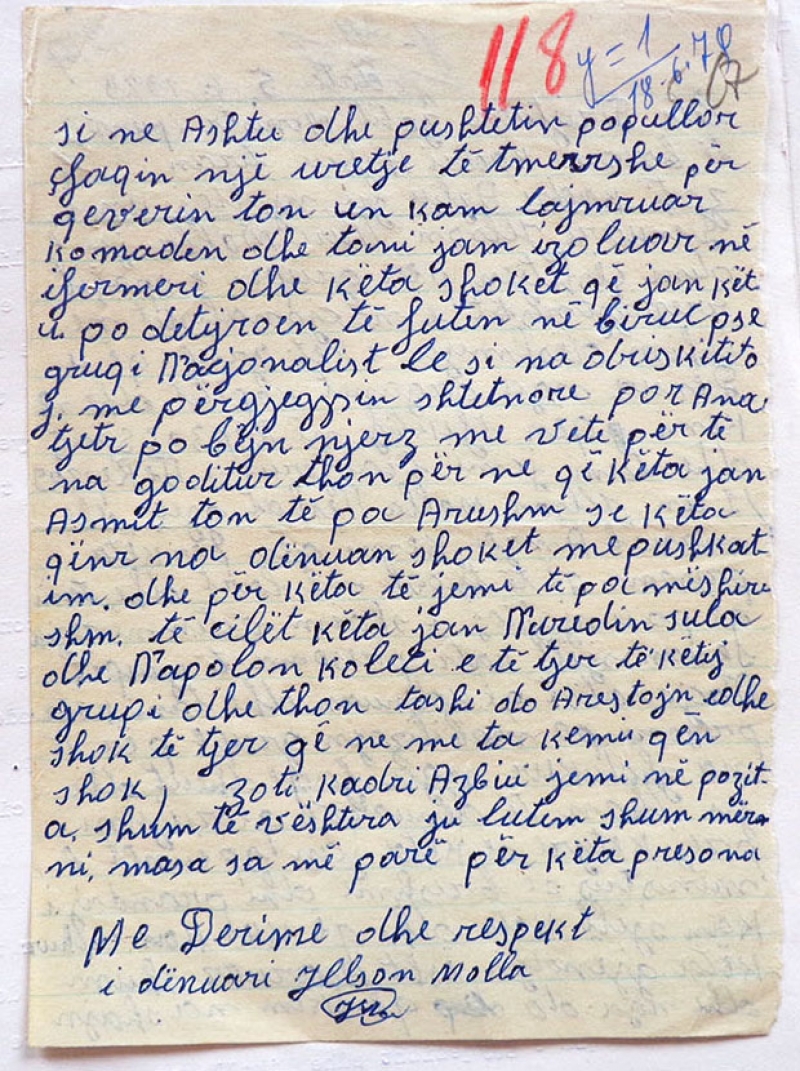 118 y = 1
18.6.78
67
si ne Ashtu dhe pushtetin popullor
çfaqin një uretje të tmerrshe për
qeverin ton un kam lajmruar
komaden dhe tani jam izoluar në
ifermeri dhe këta shoket që jan kët
u. po detyroen të futen në biruc pse
grupi Nacjonalist le si na
j. me përgjegjsin shtetnore por Ana
tjetr po bëjn njerz me vete për të
na goditur thon për ne që këta jan
Asmit ton të pa Arushm se këta
qënr na dënuan shoket me pushkat-
im. dhe për këta të jemi të pa mëshire
shm. të cilët këta jan Nuredin sula
dhe Napolon koleci e të tjer të këtij
grupi dhe thon tashi do Arestojn edhe
shok të tjer që ne me ta kemi qën
shok) zoti kadri Azbiu jemi në pozit-
a. shum të vështira ju lutem shum mërr
ni. masa sa më parë për këta presona
Me Derime dhe respekt
i dënuari Jllson Molla